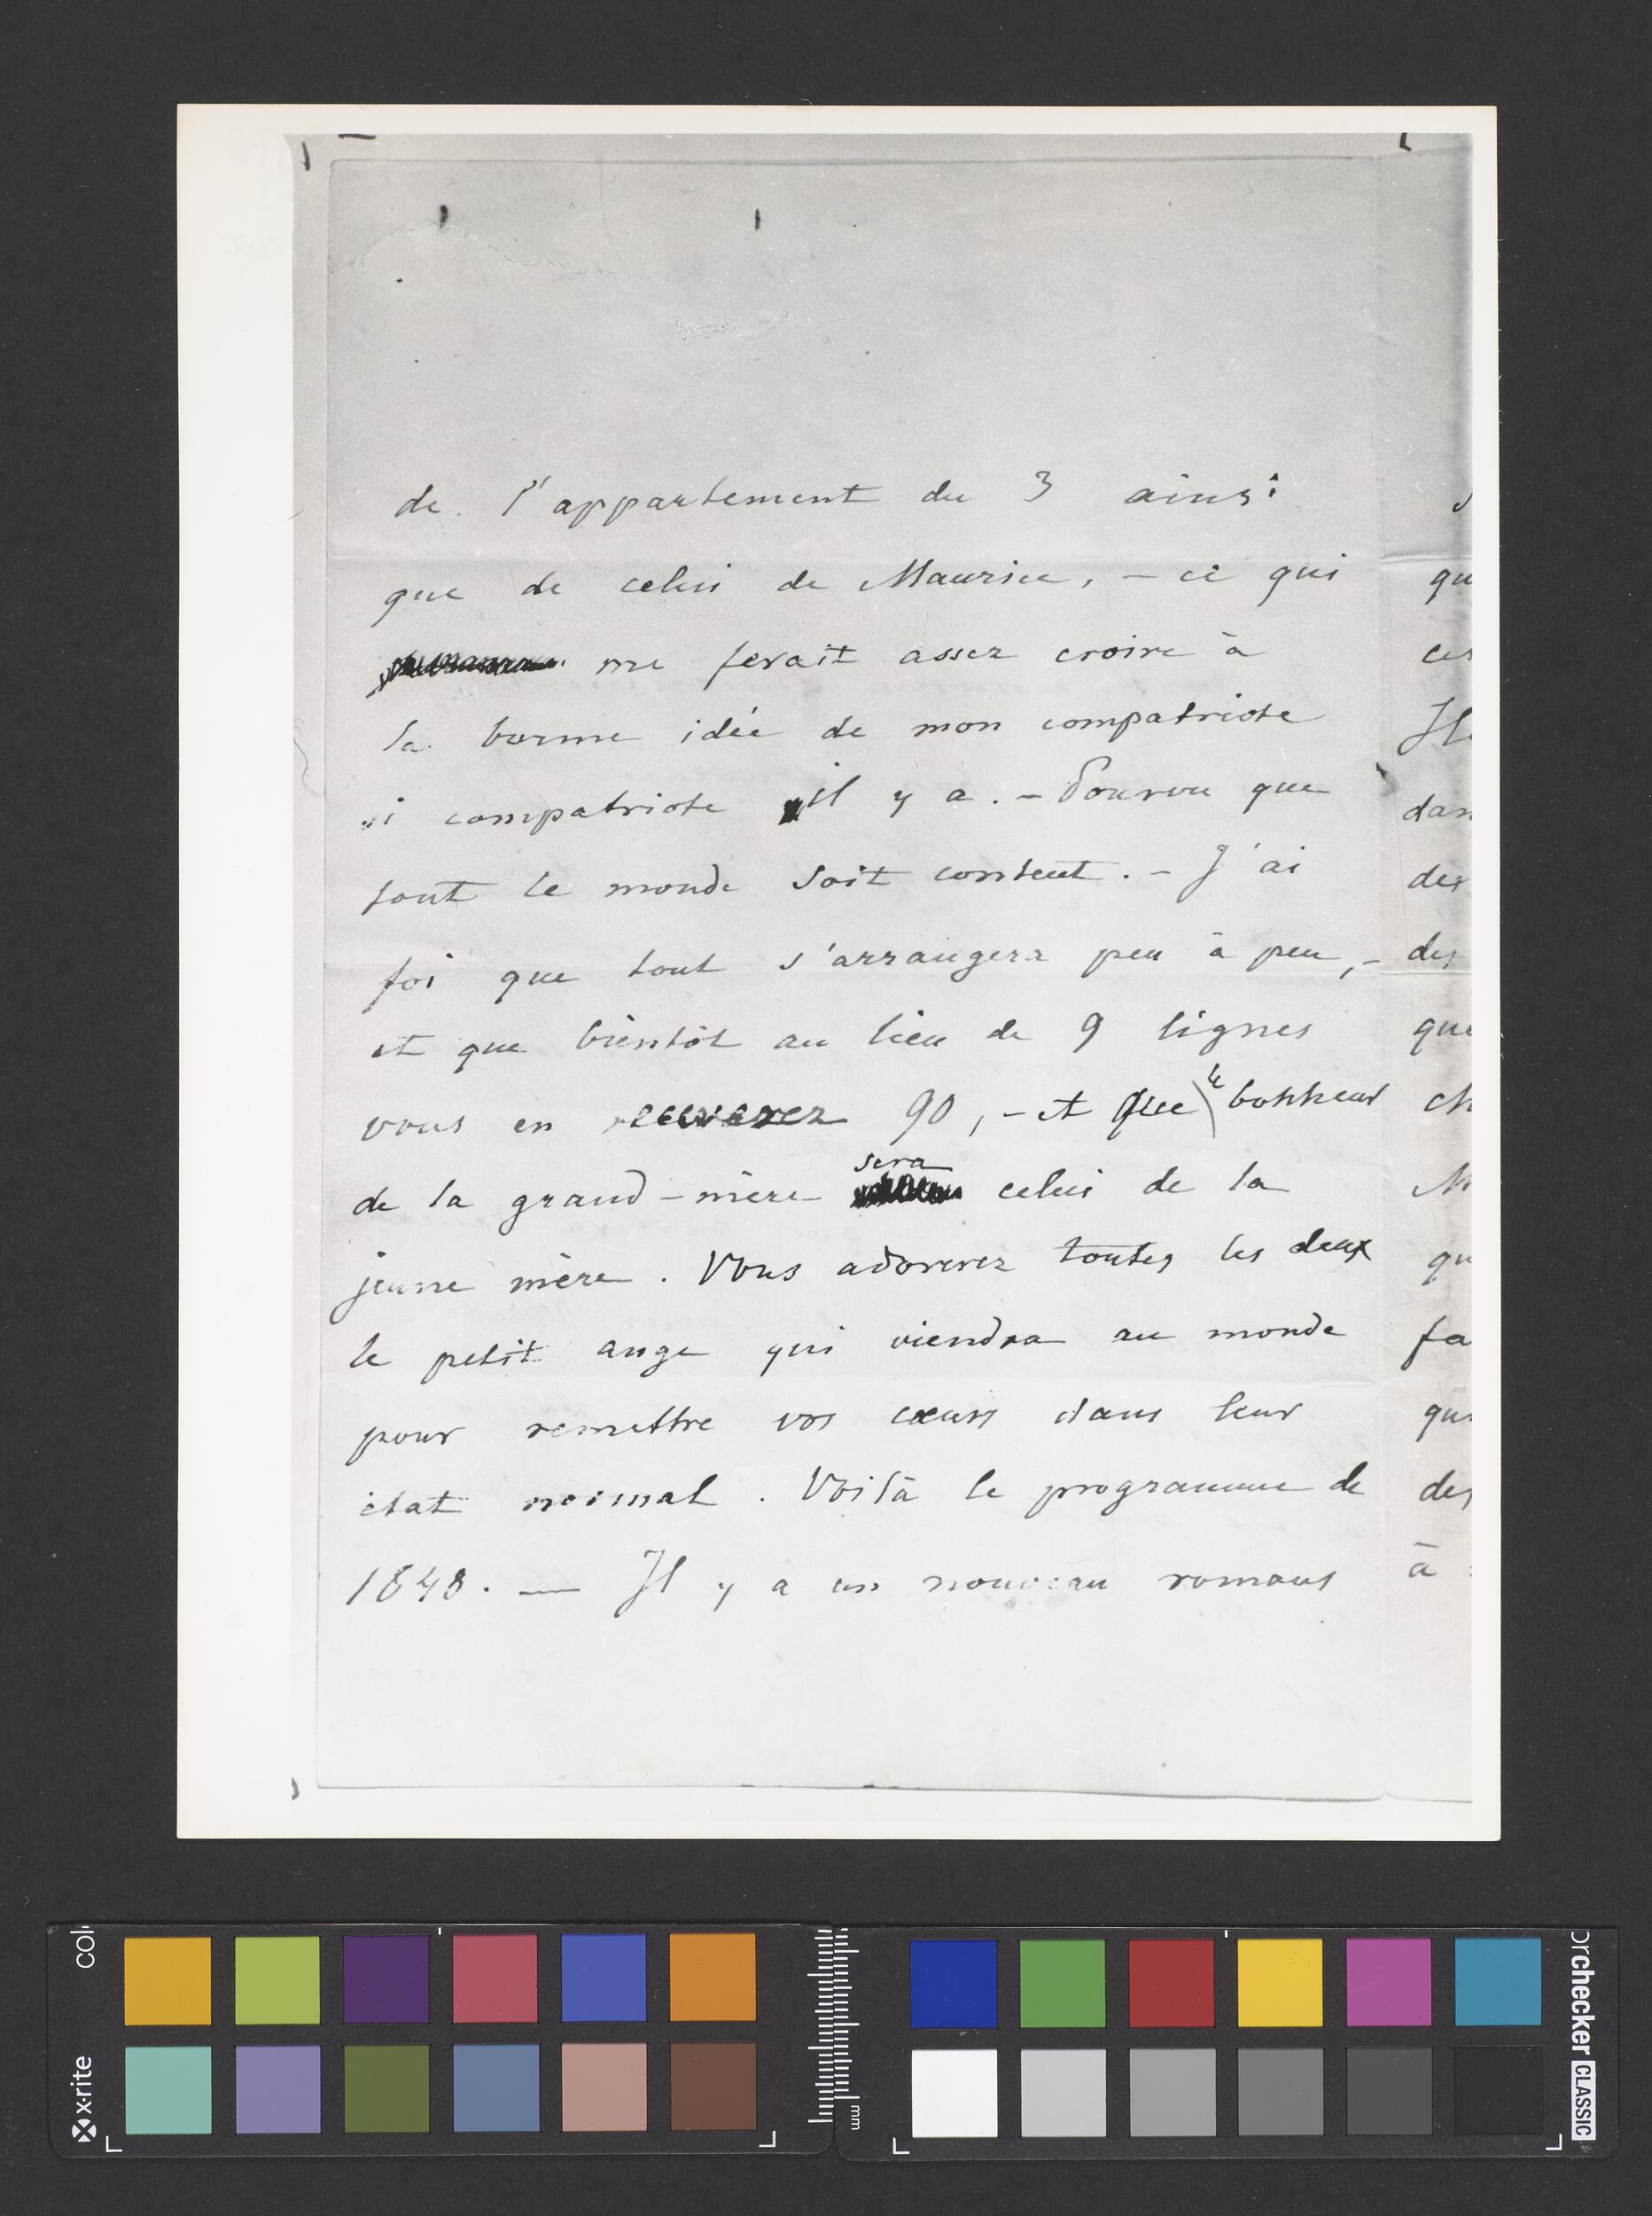 de l'appartement du 3 ainsi
que de celui de Maurice, – ce qui
me ferait assez croire à
la bonne idée de mon compatriote
si compatriote il y a. – Pourvu que
tout le monde soit content. – J'ai
foi que tout s'arrangera peu à peu, –
et que bientôt au lieu de 9 lignes
vous en recevrez 90, – et que le bonheur
de la grand-mère sera celui de la
jeune mère. Vous adorerez toutes les deux
le petit ange qui viendra au monde
pour remettre vos cœurs dans leur
état normal. Voilà le programme de
1848. — Il y a un nouveau romans
qu
ces
Il
dan
des
des
que
ch
M
qu
fa
qu
des
à
x-rite
col
orchecker CLASSIC
mm